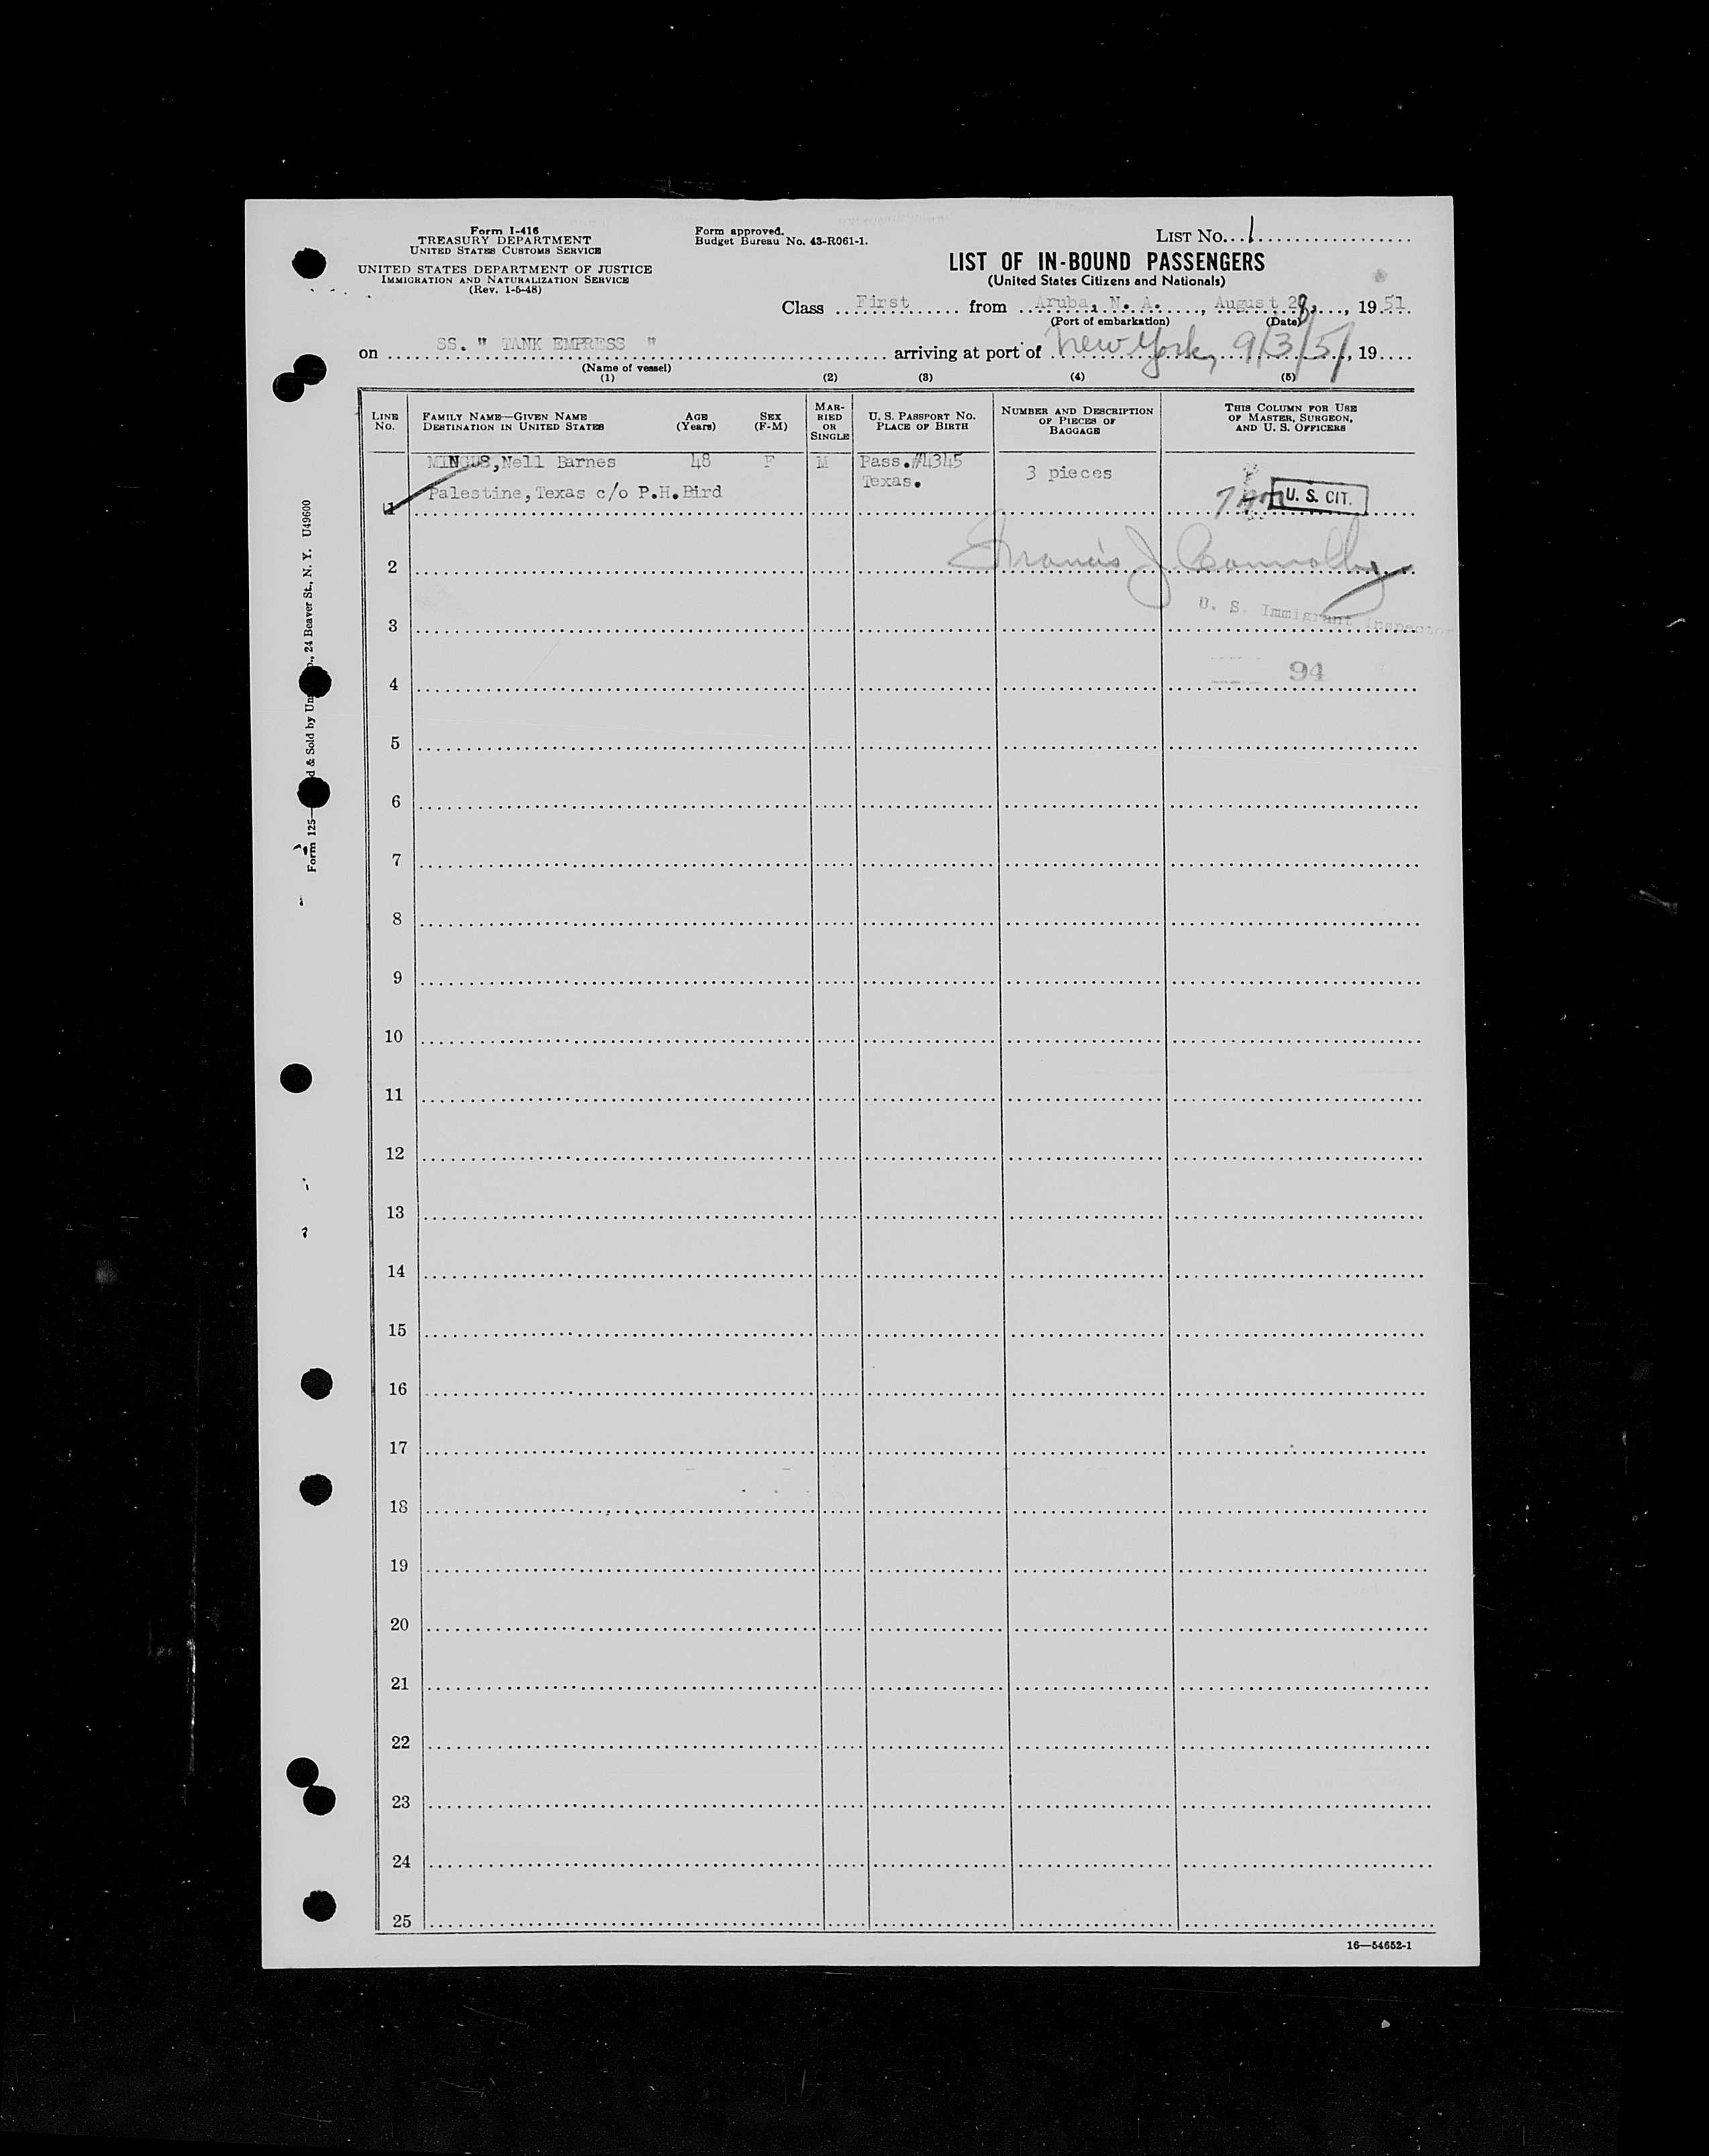 Form I-416
TREASURY DEPARTMENT
UNITED STATES CUSTOMS SERVICE
UNITED STATES DEPARTMENT OF JUSTICE
IMMIGRATION AND NATURALIZATION SERVICE
(Rev. 1-5-48)
Form approved.
Budget Bureau No. 43-R061-1.
LIST No. 1
LIST OF IN-BOUND PASSENGERS
(United States Citizens and Nationals)
Class First from Aruba, N. A., August 28, 1951
(Port of embarkation) (Date)
on SS. " TANK EMPRESS " arriving at port of New York, 9/3/51, 19
(Name of vessel)
(1) (2) (3) (4) (5)
LINE No.
FAMILY NAME—GIVEN NAME
DESTINATION IN UNITED STATES
AGE (Years)
SEX (F-M)
MARRIED OR SINGLE
U. S. PASSPORT No.
PLACE OF BIRTH
NUMBER AND DESCRIPTION OF PIECES OF BAGGAGE
THIS COLUMN FOR USE OF MASTER, SURGEON, AND U. S. OFFICERS
MINGUS, Nell Barnes 48 F M Pass.#4345 3 pieces
Palestine, Texas c/o P.H.Bird Texas.
1
U. S. CIT.
2
Francis J Connolly
U. S. Immigrant Inspector
3
94
4
5
6
7
8
9
10
11
12
13
14
15
16
17
18
19
20
21
22
23
24
25
16—54652-1
Form 125— d & Sold by Un ., 24 Beaver St., N. Y. U49600